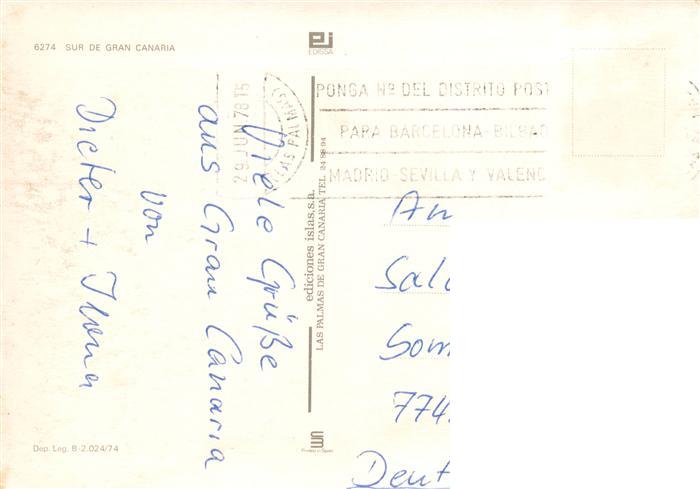 6274 SUR DE GRAN CANARIA
EDISSA
29 JUN 78 15
(LAS PALMAS)
PONGA Nº DEL DISTRITO POST
PARA BARCELONA-BILBAO
MADRID-SEVILLA Y VALENC
Viele Grüße
aus Gran Canaria
von
Dieter + Ilona
ediciones islas,s.a.
LAS PALMAS DE GRAN CANARIA TEL. 24 88 94
An
Som
774
Deut
Dep. Leg. B-2.024/74
Printed in Spain